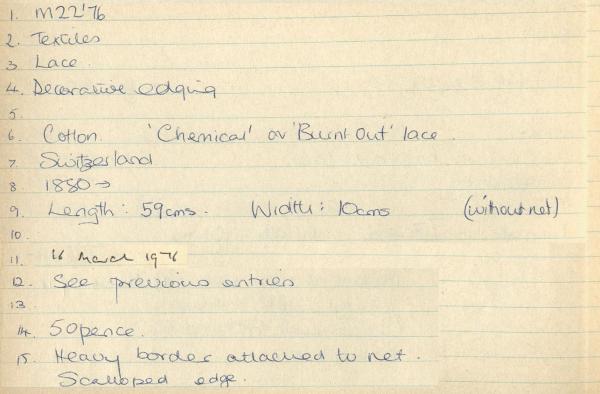 1. M22'76
2. Textiles
3. Lace.
4. Decorative edging
5.
6. Cotton. 'Chemical' or 'Burnt Out' lace.
7. Switzerland
8. 1880→
9. Length: 59cms. Width: 10cms (without net)
10.
11. 16 March 1976
12. See previous entries
13.
14. 50pence.
15. Heavy border attached to net.
Scalloped edge.